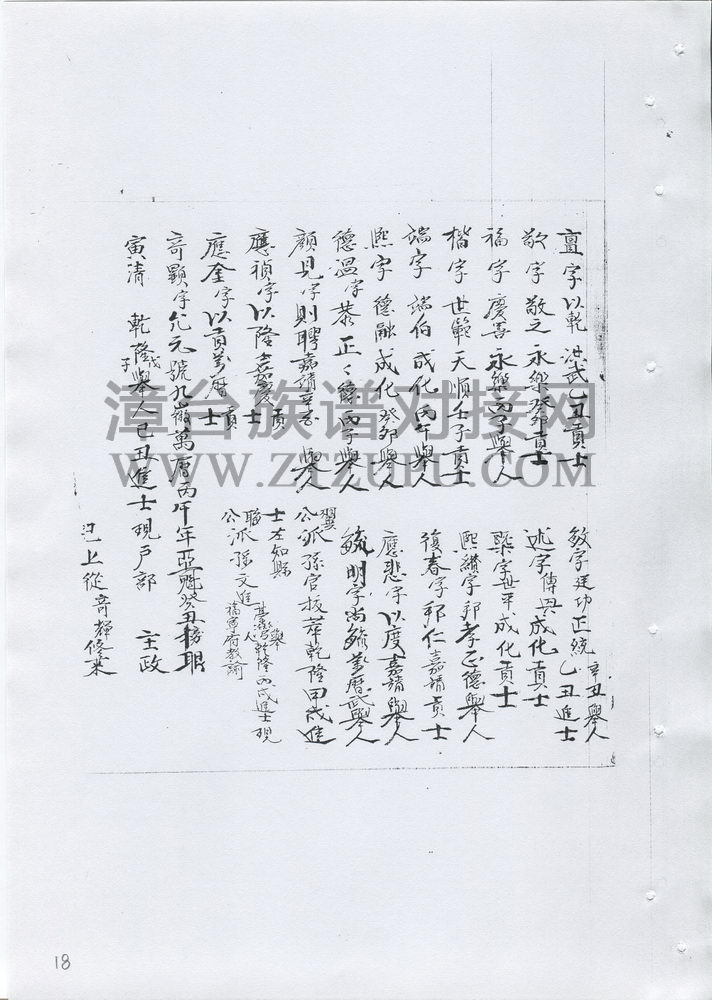 亶字以乾 洪武乙丑貢士
敏字廷功正統辛丑舉人乙丑進士
敬字敬之 永樂癸卯貢士
述字傳 成化貢士
福字慶善 永樂丙子舉人
字世平成化貢士
楷字世範 天順壬子貢士
熙纘字邦孝正德舉人
端字端伯 成化丙午舉人
復春字邦仁嘉靖貢士
熙字德融 成化癸卯舉人
應悲字以度嘉靖舉人
德溫字恭 正〻德丙子舉人
毓明字尚 萬曆武舉人
顏見字則聘嘉靖 舉人
翼公派孫官拔萃乾隆甲戌進士在知縣
應禎字以隆嘉慶貢士
聯公派孫文進 舉人乾隆丙戌進士現 福寧府教諭
應奎字以貢萬曆貢士
奇顯字允元號 萬曆丙午年亞魁癸丑榜眼
寅清 乾隆戊子舉人己丑進士現戶部 主政
已上從奇輝修來
18
漳台族谱对接网
WWW.ZTZUPU.COM